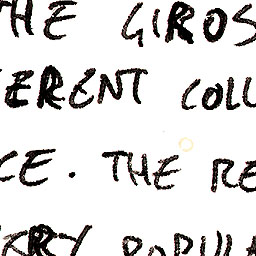 THE GIROS
ERENT COLL
CE. THE RE
ERY POPULA